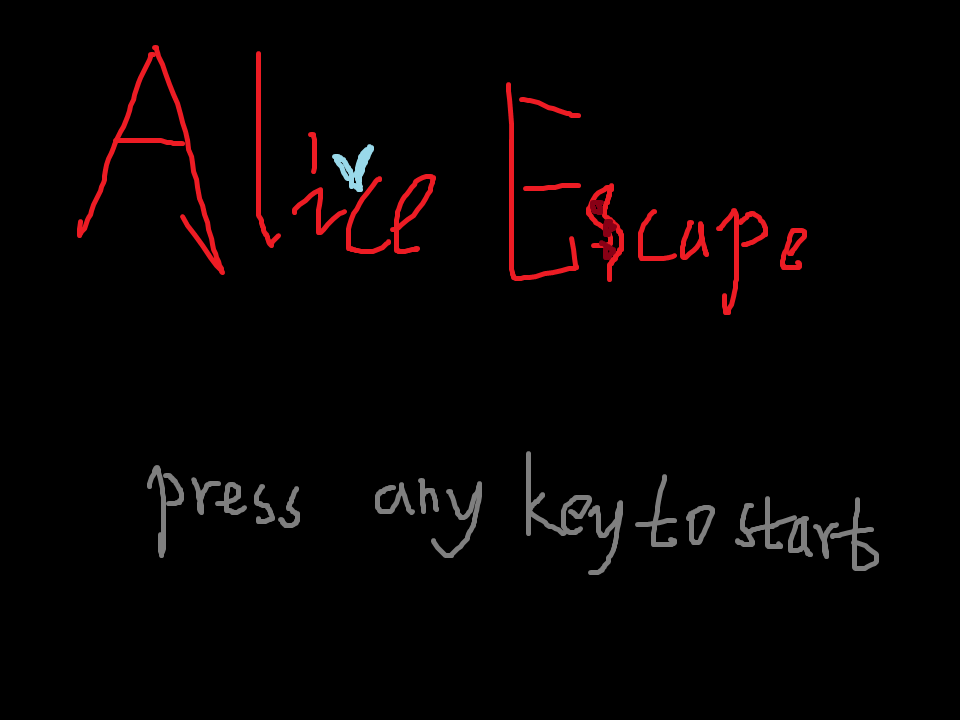 Alice Escape
press any key to start